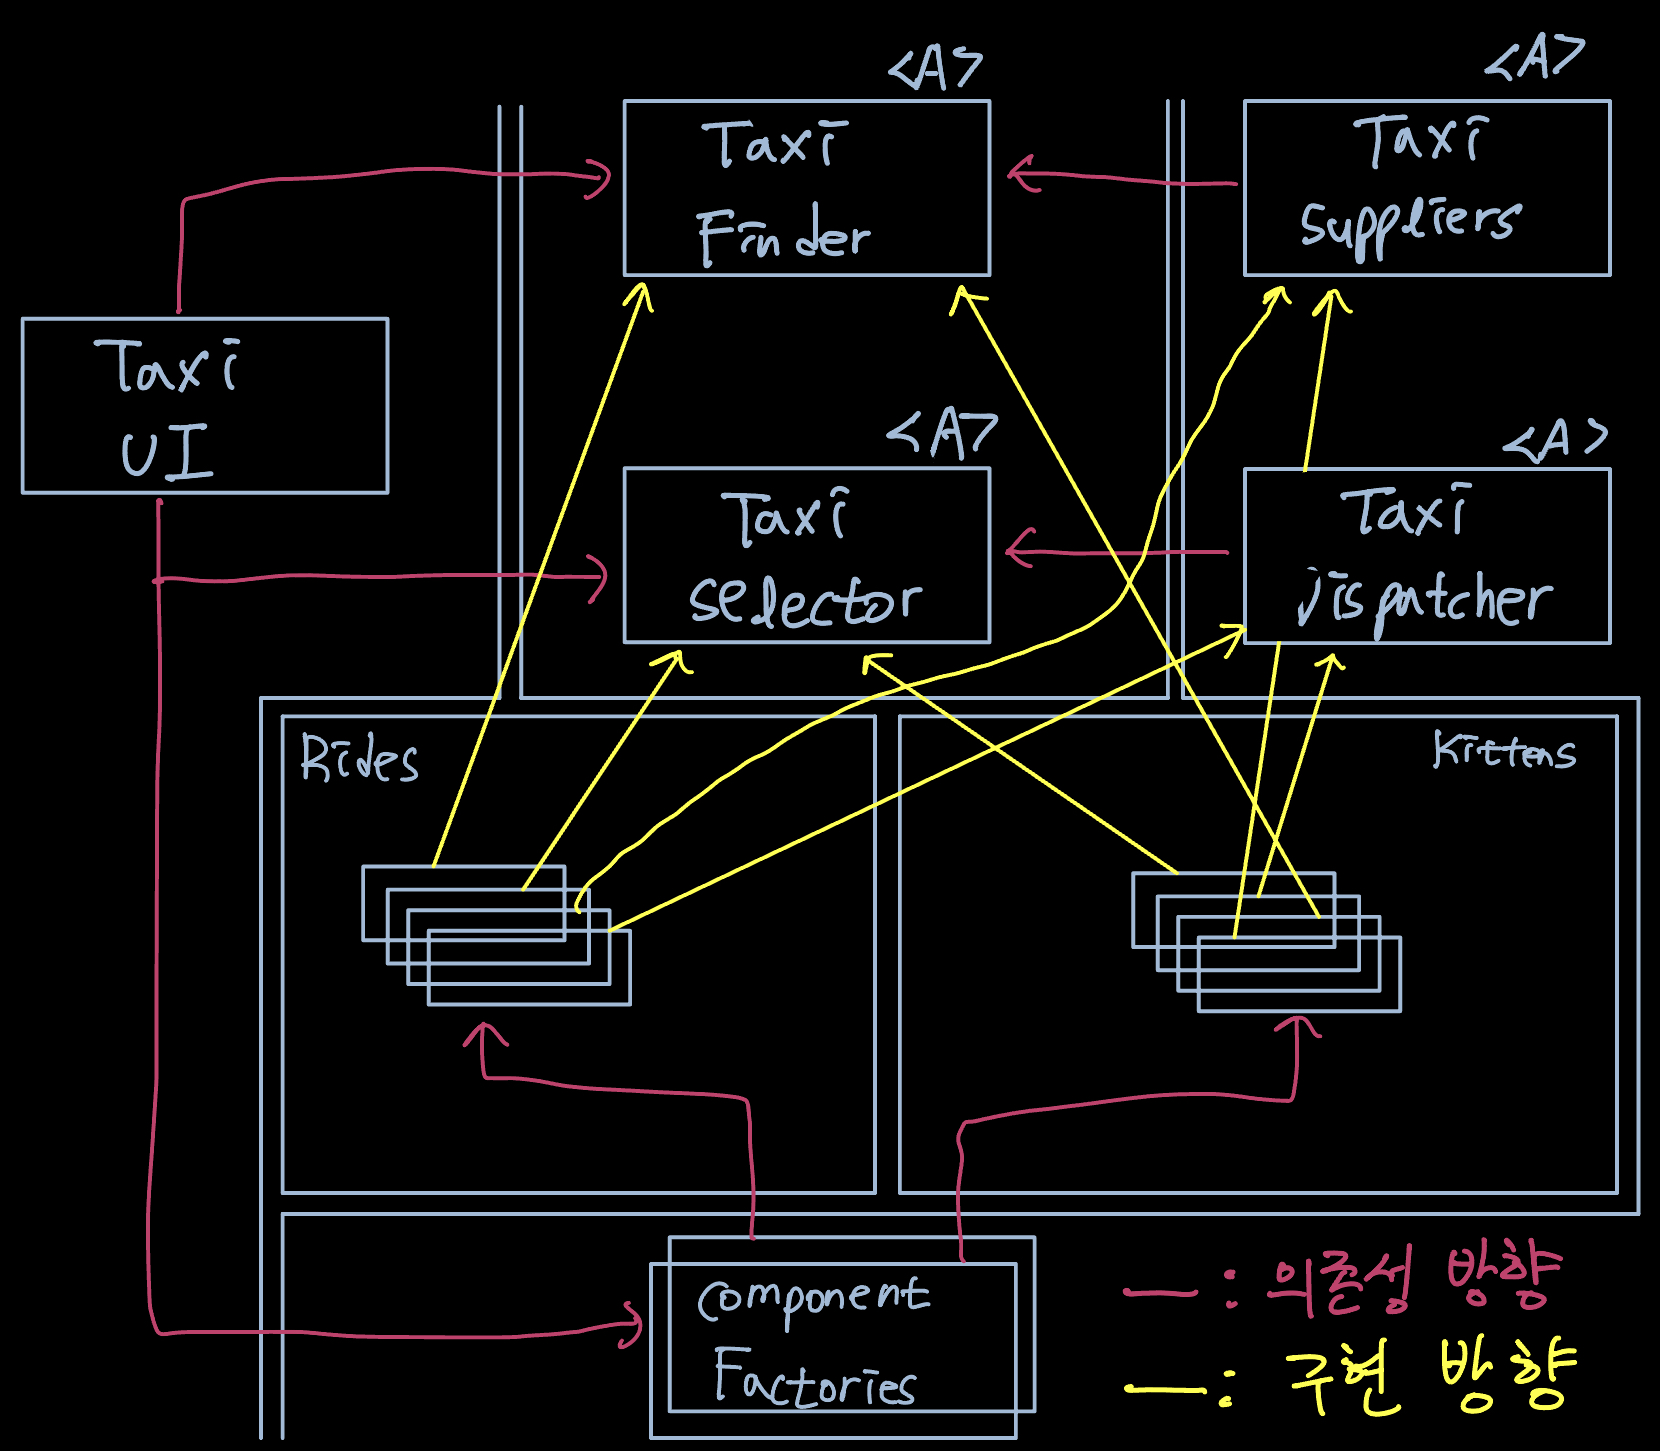 <A>
Taxi
Finder
<A>
Taxi
Suppliers
Taxi
UI
<A>
Taxi
Selector
<A>
Taxi
Dispatcher
Rides
Kittens
Component
Factories
— : 의존성 방향
— : 구현 방향